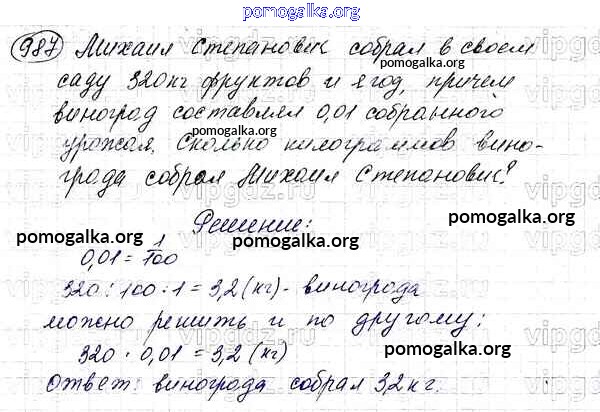 pomogalka.org
987 Михаил Степанович собрал в своем
саду 320 кг фруктов и ягод, причем
виноград составлял 0,01 собранного
pomogalka.org
урожая. Сколько килограммов вино-
града собрал Михаил Степанович?
Решение:
pomogalka.org
pomogalka.org
0,01 = 1/100
320 : 100 · 1 = 3,2 (кг) - винограда
можно решить и по другому:
320 · 0,01 = 3,2 (кг)
pomogalka.org
Ответ: винограда собрал 3,2 кг.